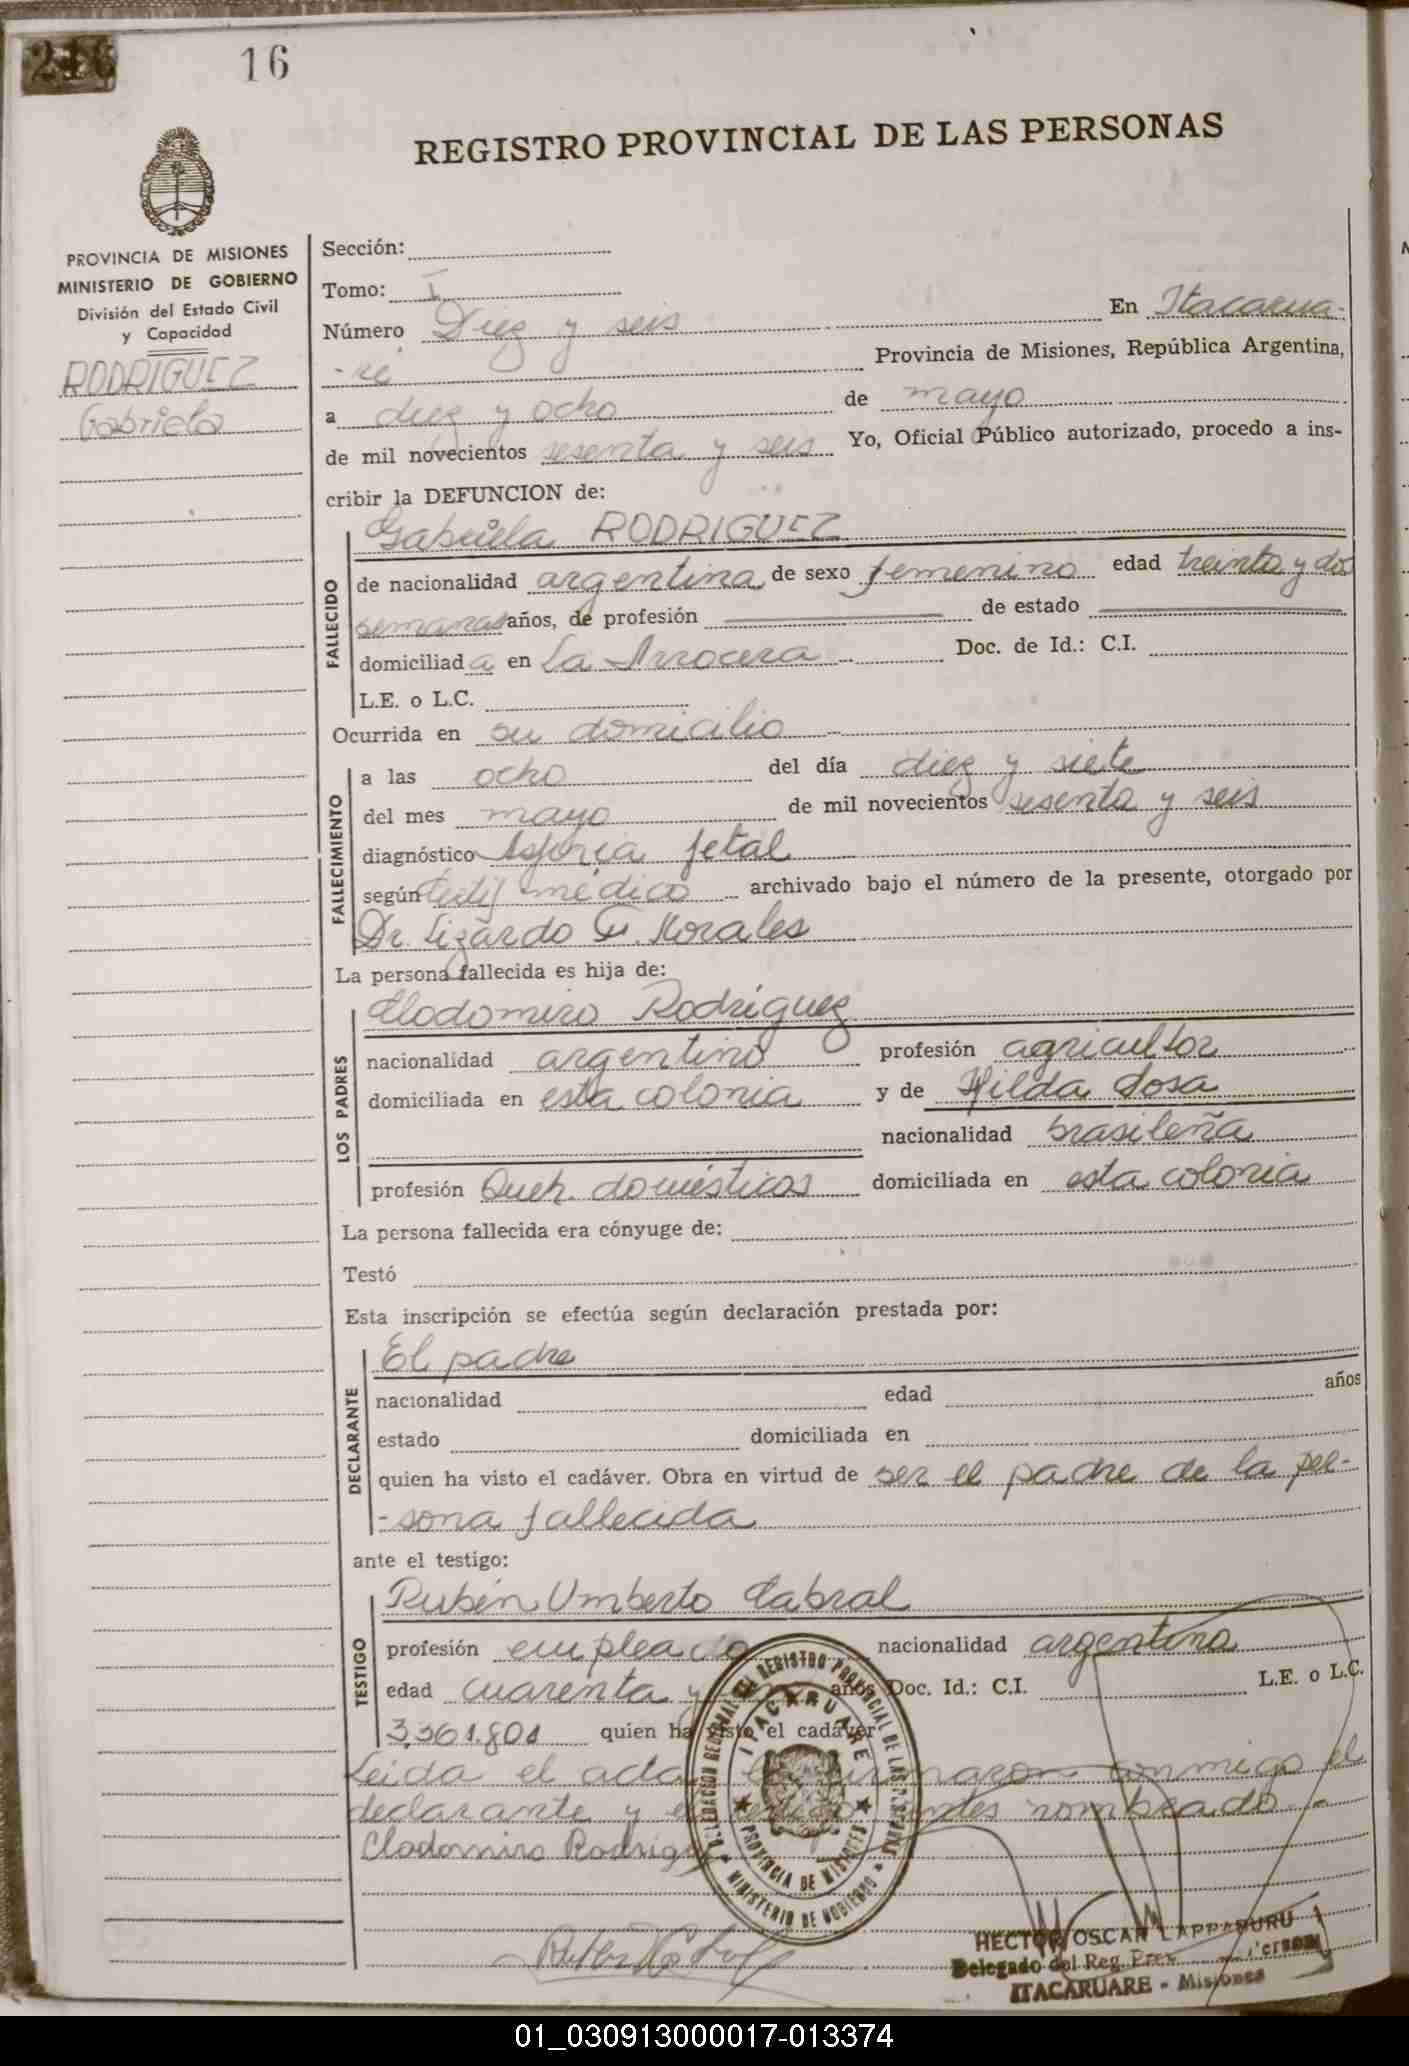 216
16
REGISTRO PROVINCIAL DE LAS PERSONAS
PROVINCIA DE MISIONES
MINISTERIO DE GOBIERNO
División del Estado Civil
y Capacidad
RODRIGUEZ
Gabriela
Sección:
Tomo: I
Número Diez y seis En Itacarua-
-ré Provincia de Misiones, República Argentina,
a diez y ocho de mayo
de mil novecientos sesenta y seis Yo, Oficial Público autorizado, procedo a ins-
cribir la DEFUNCION de:
FALLECIDO
Gabriela RODRIGUEZ
de nacionalidad argentina de sexo femenino edad treinta y dos
semanas años, de profesión de estado
domiciliada en La Arrocera Doc. de Id.: C.I.
L.E. o L.C.
Ocurrida en su domicilio
FALLECIMIENTO
a las ocho del día diez y siete
del mes mayo de mil novecientos sesenta y seis
diagnóstico Asfixia fetal
según Certif médico archivado bajo el número de la presente, otorgado por
Dr. Lizardo F. Morales
La persona fallecida es hija de:
LOS PADRES
Clodomiro Rodriguez
nacionalidad argentino profesión agricultor
domiciliada en esta colonia y de Hilda Sosa
nacionalidad brasileña
profesión Queh. domésticos domiciliada en esta colonia
La persona fallecida era cónyuge de:
Testó
Esta inscripción se efectúa según declaración prestada por:
DECLARANTE
El padre
nacionalidad edad años
estado domiciliada en
quien ha visto el cadáver. Obra en virtud de ser el padre de la per-
-sona fallecida
ante el testigo:
TESTIGO
Rubén Umberto Cabral
profesión empleado nacionalidad argentina
edad cuarenta y años Doc. Id.: C.I. L.E. o L.C.
3.361.801 quien ha visto el cadáver
Leida el acta la firmaron conmigo el
declarante y el testigo antes nombrado.-
Clodomiro Rodriguez
DELEGACION REGIONAL DEL REGISTRO PROVINCIAL DE LAS PERSONAS
ITACARUARE
PROVINCIA DE MISIONES
MINISTERIO DE GOBIERNO
HECTOR OSCAR LAPPARURU
Delegado del Reg. Prov. Personas
ITACARUARE - Misiones
01_030913000017-013374